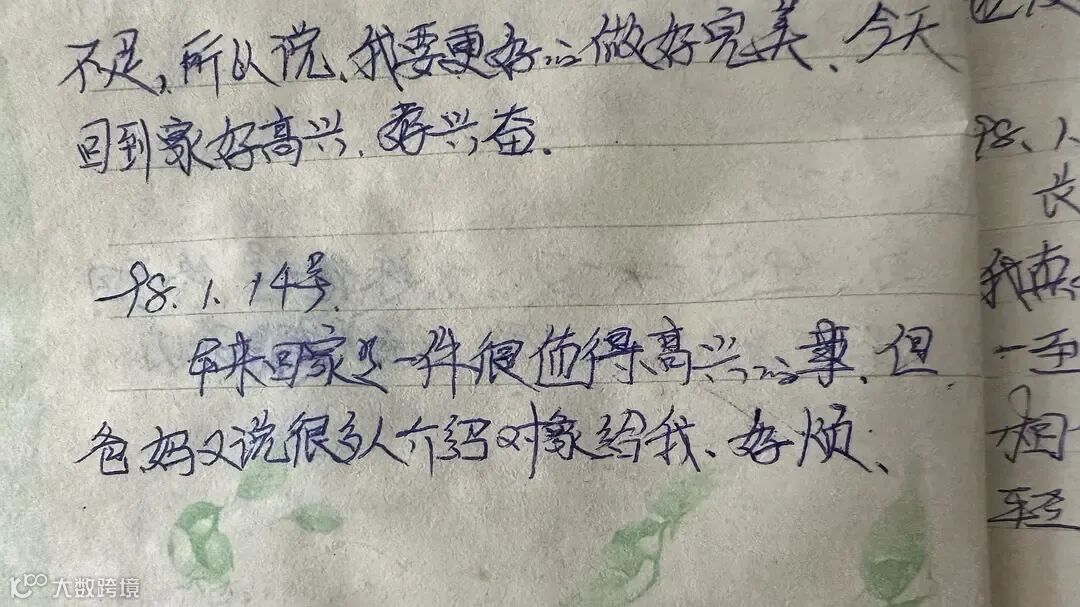 不足,所以说、我要更好的做好完美、今天
回到家好高兴、好兴奋.
98.1.14号.
本来回家是一件很值得高兴的事、但
爸妈又说很多人介绍对象给我、好烦、
98、1、
长
我真
一至
相
轻
大数跨境